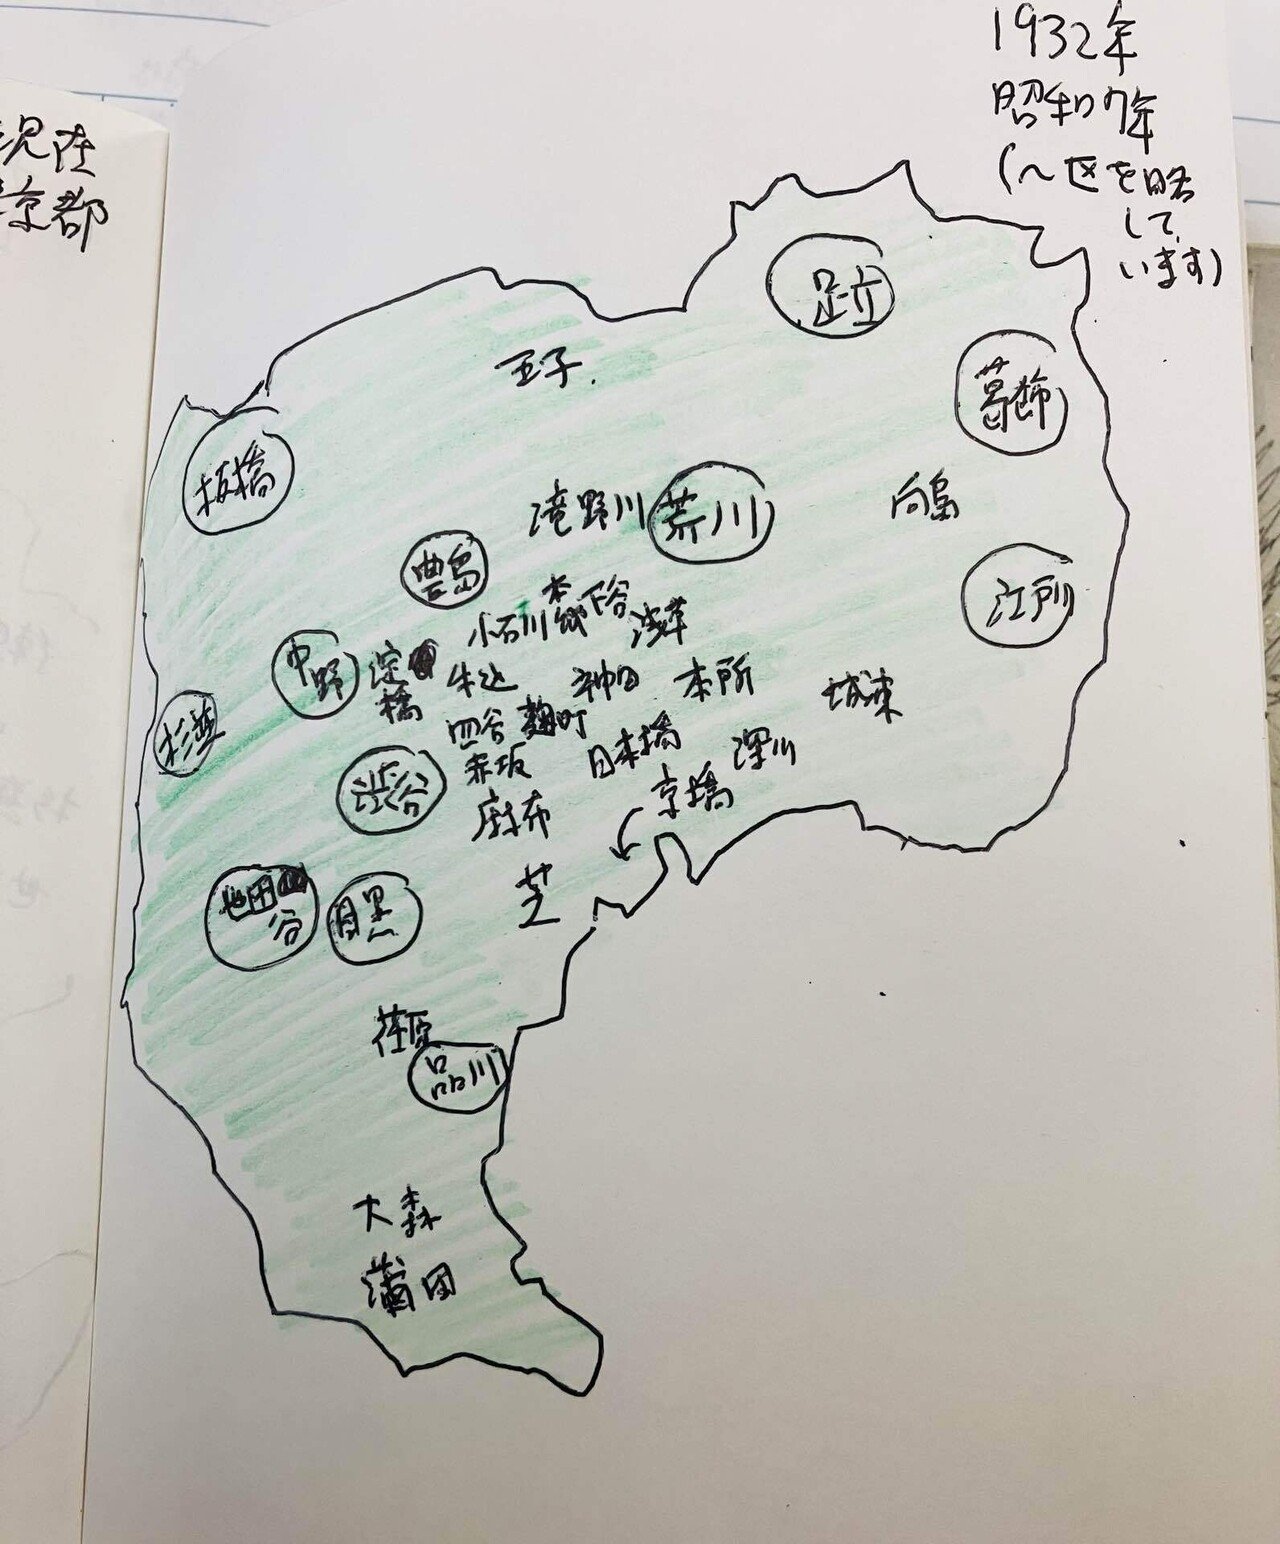 1932年
昭和7年
(～区を略
して
います)
現在
京都
足立
王子
葛飾
板橋
滝野川
荒川
向島
豊島
江戸川
本郷
下谷
小石川
浅草
中野
淀
橋
牛込
神田
本所
城東
杉並
四谷
麹町
赤坂
日本橋
深川
渋谷
京橋
麻布
芝
世田
谷
目黒
荏原
品川
大森
蒲田